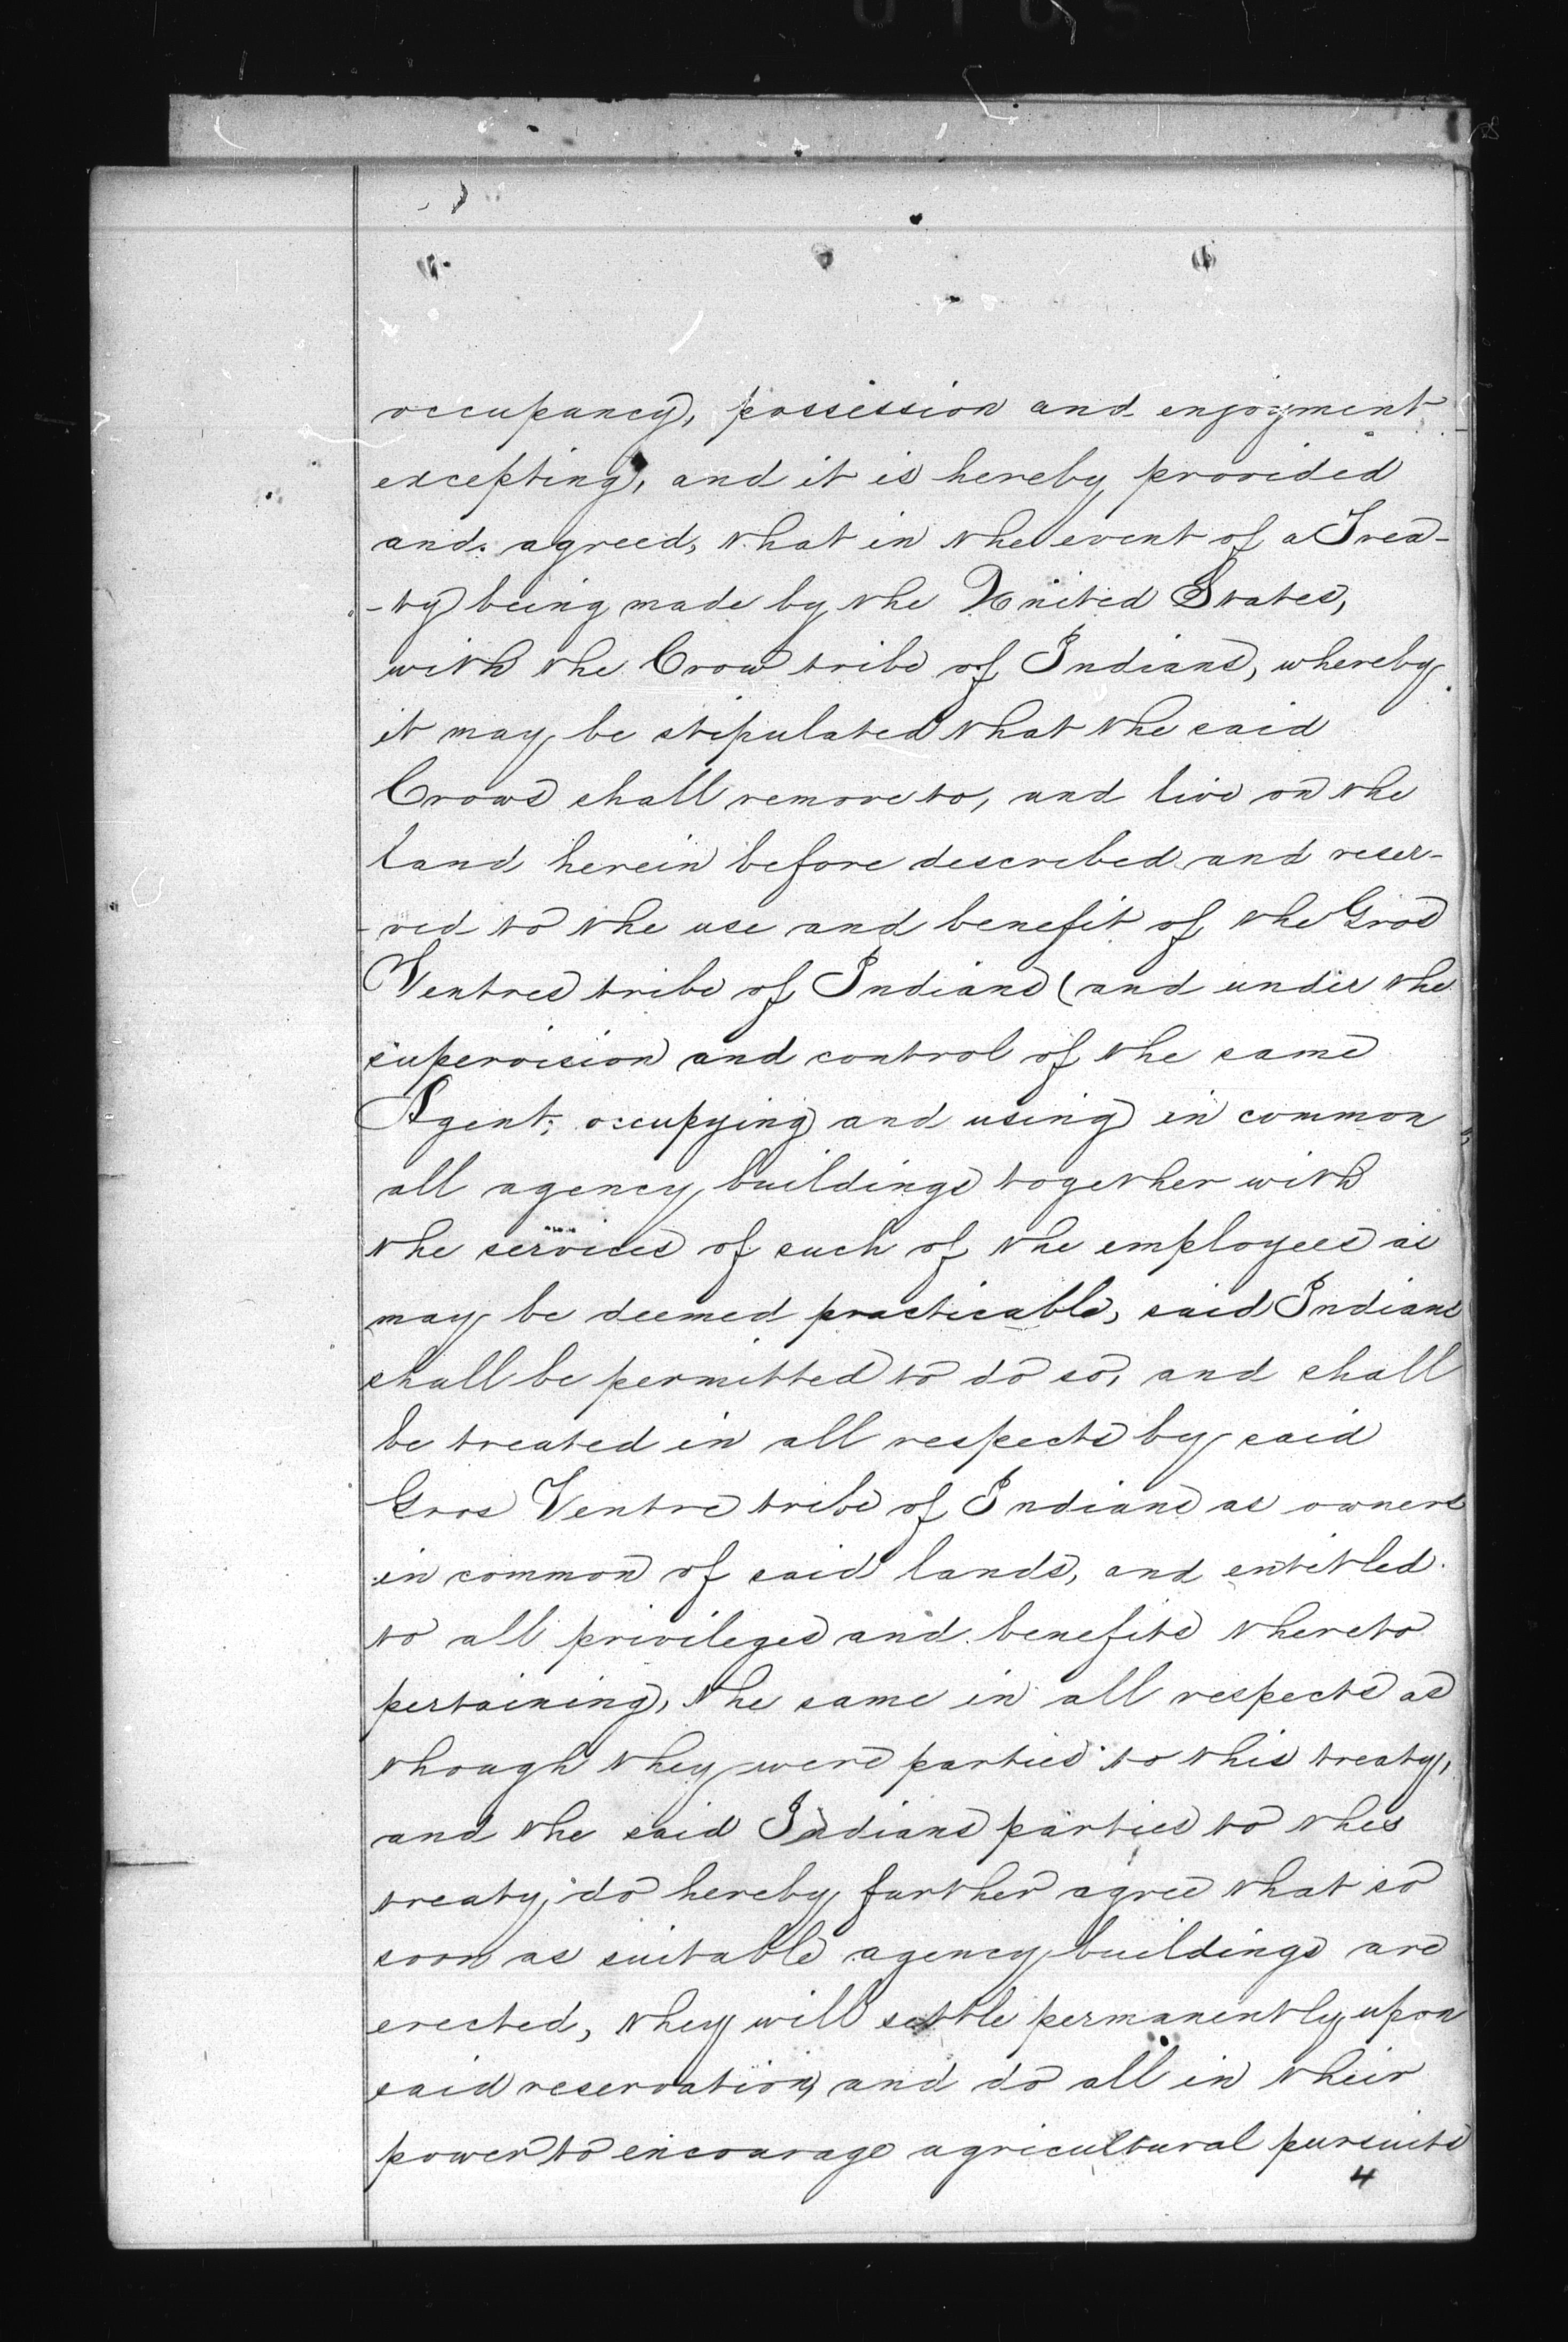 occupancy, possession and enjoyment
excepting, and it is hereby provided
and agreed, that in the event of a Trea-
-ty being made by the United States,
with the Crow tribe of Indians, whereby
it may be stipulated that the said
Crows shall remove to, and live on the
land herein before described and reser-
-ved to the use and benefit of the Gros
Ventres tribe of Indians (and under the
supervision and control of the same
Agent; occupying and using in common
all agency buildings together with
the services of such of the employees as
may be deemed practicable, said Indians
shall be permitted to do so, and shall
be treated in all respects by said
Gros Ventre tribe of Indians as owners
in common of said lands, and entitled
to all privileges and benefits thereto
pertaining, the same in all respects as
though they were parties to this treaty,
and the said Indians parties to this
treaty, do hereby further agree that so
soon as suitable agency buildings are
erected, they will settle permanently upon
said reservation, and do all in their
power to encourage agricultural pursuits
4